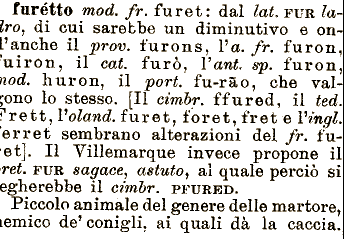 furétto mod. fr. furet: dal lat. FUR la-
dro, di cui sarebbe un diminutivo e on-
l'anche il prov. furons, l'a. fr. furon,
fuiron, il cat. furò, l'ant. sp. furon,
mod. huron, il port. fu-rão, che val-
gono lo stesso. [Il cimbr. ffured, il ted.
Frett, l'oland. furet, foret, fret e l'ingl.
ferret sembrano alterazioni del fr. fu-
ret]. Il Villemarque invece propone il
bret. FUR sagace, astuto, al quale perciò si
legherebbe il cimbr. PFURED.
Piccolo animale del genere delle martore,
nemico de' conigli, ai quali dà la caccia.